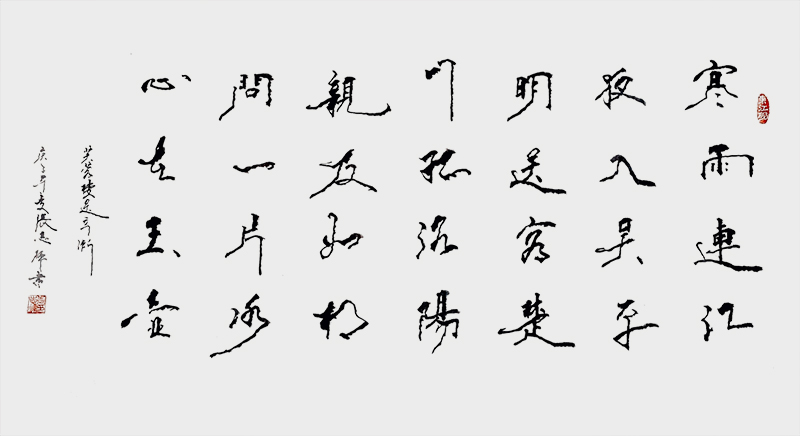 寒雨連江
夜入吳平
明送客楚
山孤洛陽
親友如相
問一片冰
心在玉壺
芙蓉樓送辛漸
庚子年夏張志書